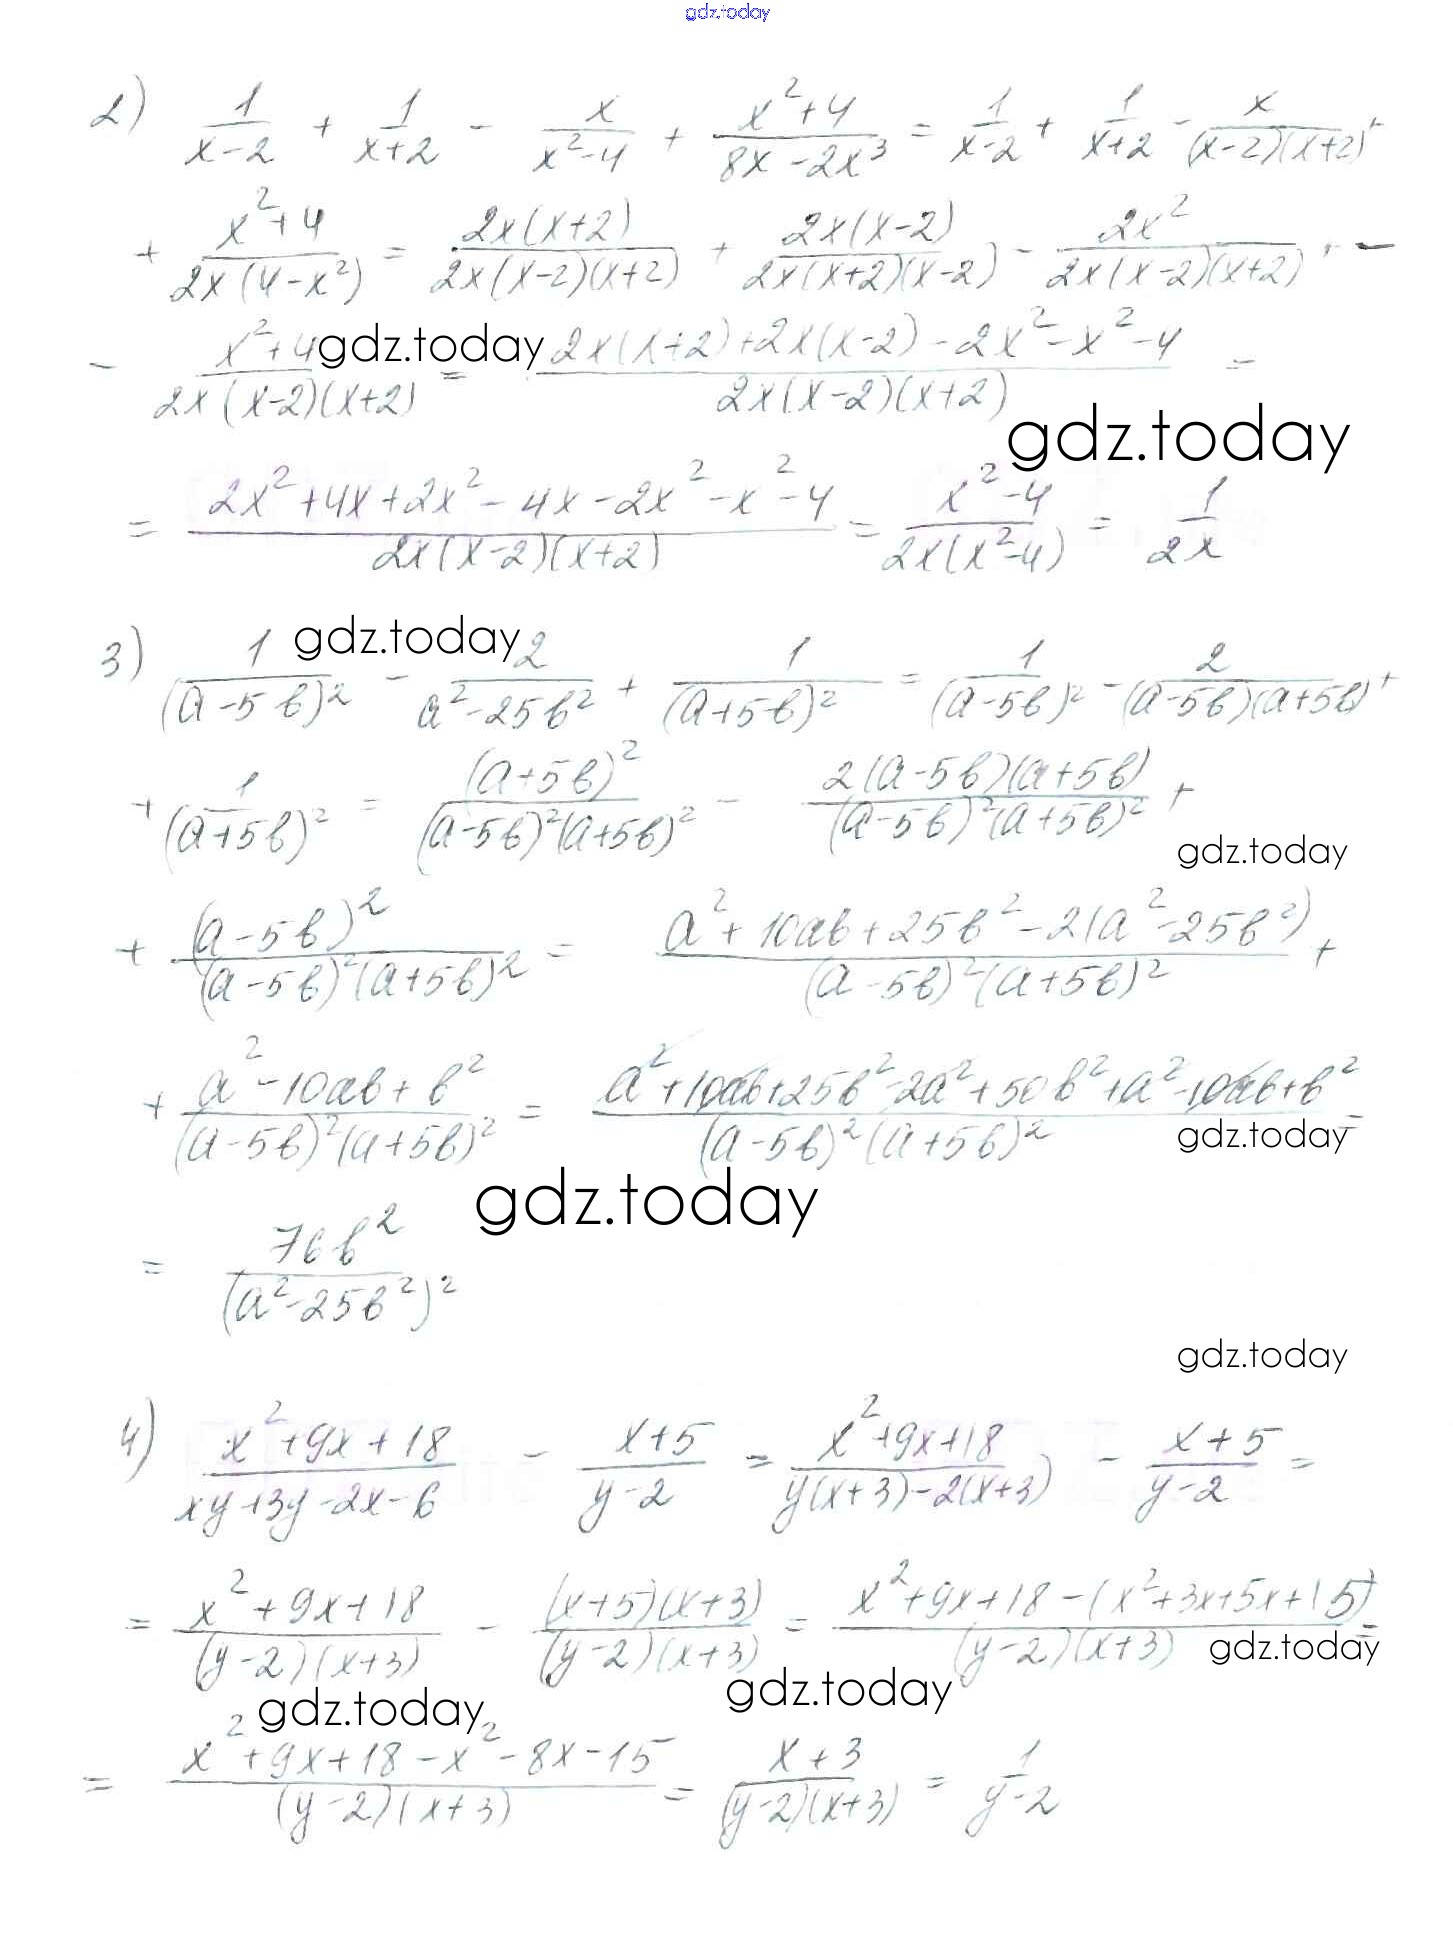 gdz.today
2) 1/(x-2) + 1/(x+2) - x/(x²-4) + (x²+4)/(8x-2x³) = 1/(x-2) + 1/(x+2) - x/((x-2)(x+2)) +
+ (x²+4)/(2x(4-x²)) = 2x(x+2)/(2x(x-2)(x+2)) + 2x(x-2)/(2x(x+2)(x-2)) - 2x²/(2x(x-2)(x+2)) + -
- (x²+4)/(2x(x-2)(x+2)) = (2x(x+2)+2x(x-2)-2x²-x²-4)/(2x(x-2)(x+2)) =
gdz.today
gdz.today
= (2x²+4x+2x²-4x-2x²-x²-4)/(2x(x-2)(x+2)) = (x²-4)/(2x(x²-4)) = 1/(2x)
gdz.today
3) 1/(a-5b)² - 2/(a²-25b²) + 1/(a+5b)² = 1/(a-5b)² - 2/((a-5b)(a+5b)) +
+ 1/(a+5b)² = (a+5b)²/((a-5b)²(a+5b)²) - 2(a-5b)(a+5b)/((a-5b)²(a+5b)²) +
gdz.today
+ (a-5b)²/((a-5b)²(a+5b)²) = (a²+10ab+25b²-2(a²-25b²))/((a-5b)²(a+5b)²) +
+ (a²-10ab+b²)/((a-5b)²(a+5b)²) = (a²+10ab+25b²-2a²+50b²+a²-10ab+b²)/((a-5b)²(a+5b)²) =
gdz.today
gdz.today
= 76b²/(a²-25b²)²
gdz.today
4) (x²+9x+18)/(xy+3y-2x-6) - (x+5)/(y-2) = (x²+9x+18)/(y(x+3)-2(x+3)) - (x+5)/(y-2) =
= (x²+9x+18)/((y-2)(x+3)) - (x+5)(x+3)/((y-2)(x+3)) = (x²+9x+18-(x²+3x+5x+15))/((y-2)(x+3)) =
gdz.today
gdz.today
gdz.today
= (x²+9x+18-x²-8x-15)/((y-2)(x+3)) = (x+3)/((y-2)(x+3)) = 1/(y-2)